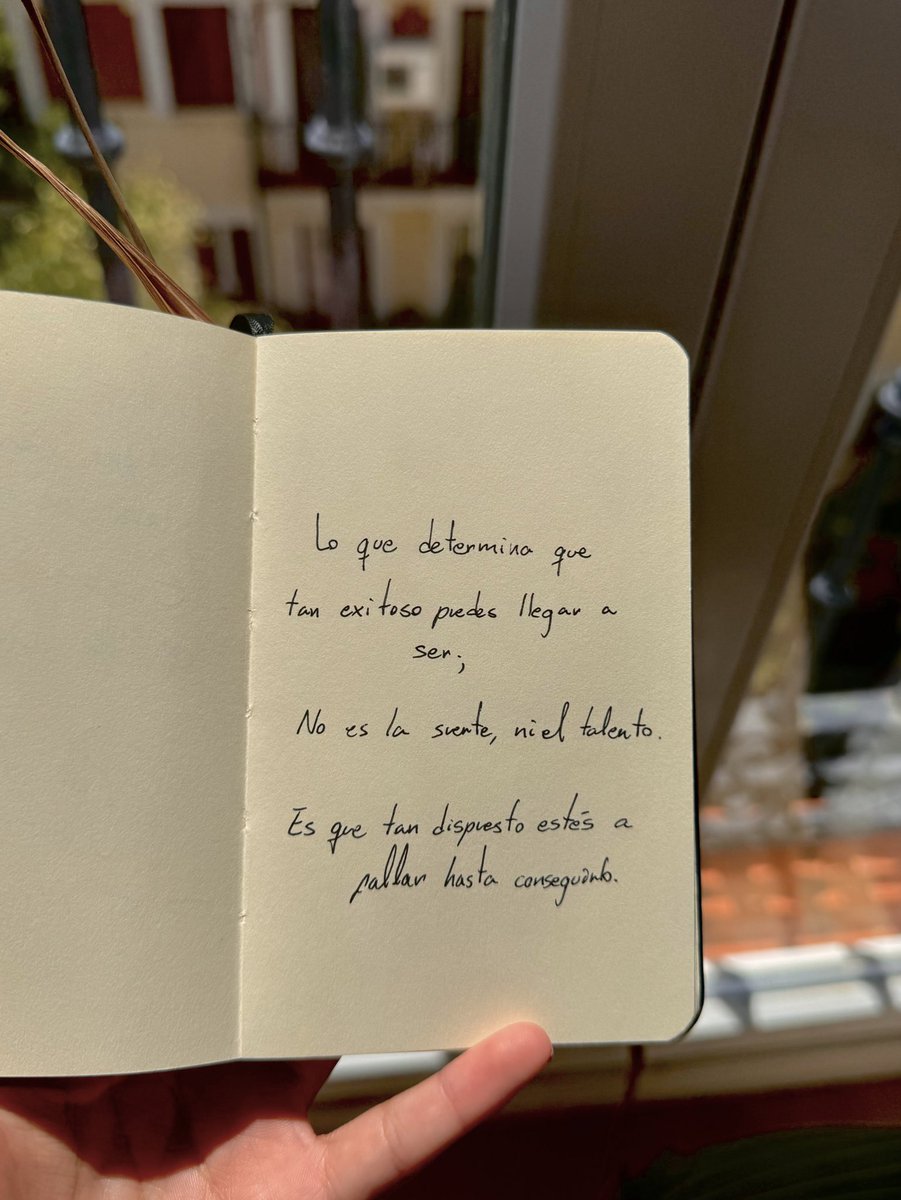 Lo que determina que
tan exitoso puedes llegar a
ser;
No es la suerte, ni el talento.
Es que tan dispuesto estés a
fallar hasta conseguirlo.